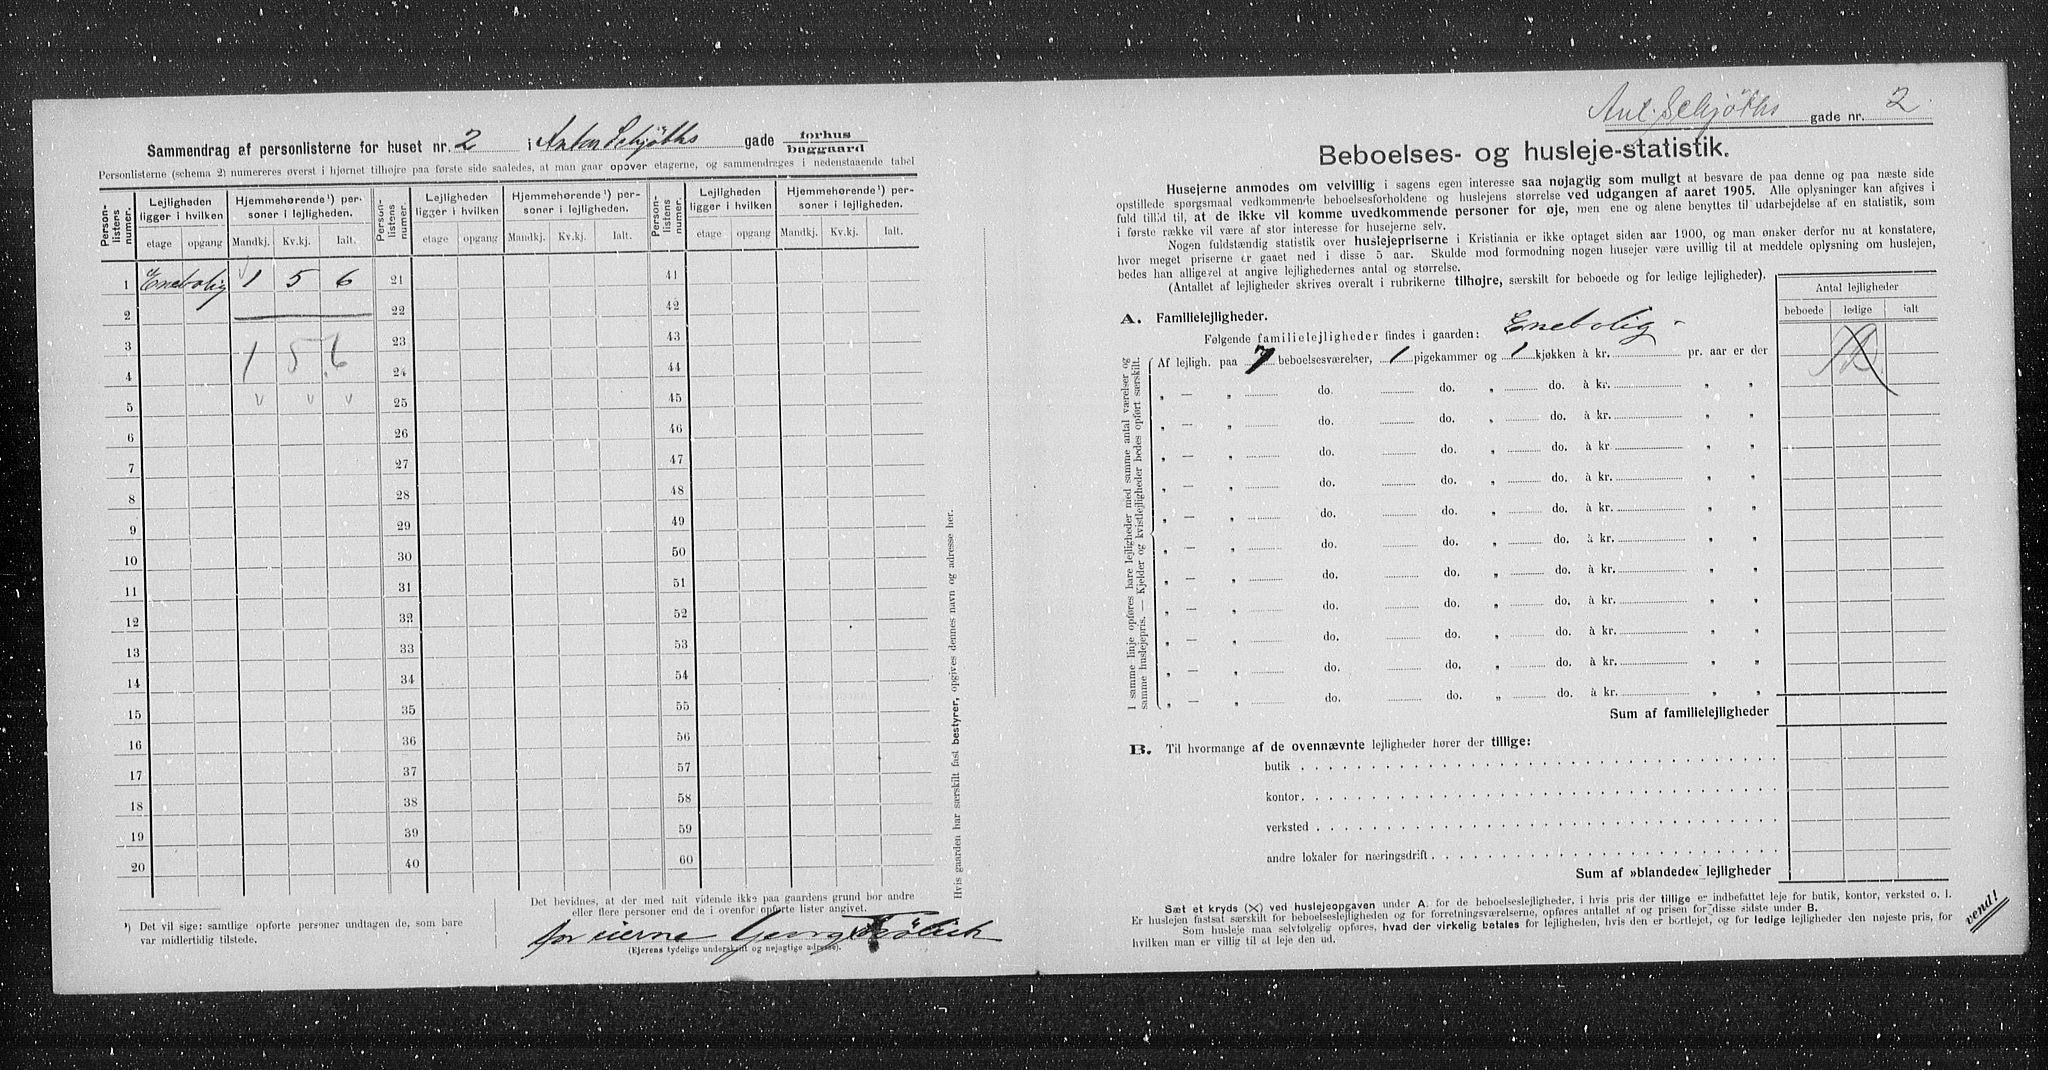 Sammendrag af personlisterne for huset nr. 2 i Anton Schjöths gade forhus
baggaard
Personlisterne (schema 2) numereres øverst i hjørnet tilhøjre paa første side saaledes, at man gaar opover etagerne, og sammendrages i nedenstaaende tabel
Person-listens numer.
Lejligheden ligger i hvilken
Hjemmehørende ¹) personer i lejligheden.
Person-listens numer.
Lejligheden ligger i hvilken
Hjemmehørende ¹) personer i lejligheden.
Person-listens numer.
Lejligheden ligger i hvilken
Hjemmehørende ¹) personer i lejligheden.
etage opgang Mandkj. Kv.kj. Ialt. etage opgang Mandkj. Kv.kj. Ialt. etage opgang Mandkj. Kv.kj. Ialt.
1 Enebolig 1 5 6 21 41
2 22 42
3 1 5 6 23 43
4 24 44
5 v v v 25 45
6 26 46
7 27 47
8 28 48
9 29 49
10 30 50
11 31 51
12 32 52
13 33 53
14 34 54
15 35 55
16 36 56
17 37 57
18 38 58
19 39 59
20 40 60
¹) Det vil sige: samtlige opførte personer undtagen de, som bare
var midlertidig tilstede.
Det bevidnes, at der med mit vidende ikke paa gaardens grund bor andre
eller flere personer end de i ovenfor opførte lister angivet.
for eierne Georg
(Ejerens tydelige underskrift og nejagtige adresse).
Hvis gaarden har særskilt fast bestyrer, opgives dennes navn og adresse her.
Ant. Schjöths gade nr. 2.
Beboelses- og husleje-statistik.
Husejerne anmodes om velvillig i sagens egen interesse saa nøjagtig som muligt at besvare de paa denne og paa næste side
opstillede spørgsmaal vedkommende beboelsesforholdene og huslejens størrelse ved udgangen af aaret 1905. Alle oplysninger kan afgives i
fuld tillid til, at de ikke vil komme uvedkommende personer for øje, men ene og alene benyttes til udarbejdelse af en statistik, som
i første række vil være af stor interesse for husejerne selv.
Nogen fuldstændig statistik over huslejepriserne i Kristiania er ikke optaget siden aar 1900, og man ønsker derfor nu at konstatere,
hvor meget priserne er gaaet ned i disse 5 aar. Skulde mod formodning nogen husejer være uvillig til at meddele oplysning om huslejen,
bedes han alligevel at angive lejlighedernes antal og størrelse.
(Antallet af lejligheder skrives overalt i rubrikerne tilhøjre, særskilt for beboede og for ledige lejligheder).
Antal lejligheder
beboede ledige ialt
A. Familielejligheder.
Følgende familielejligheder findes i gaarden: Enebolig
Af lejligh. paa 7 beboelsesværelser, 1 pigekammer og 1 kjøkken à kr. pr. aar er der
„ — „ do. do. „ do. à kr. „ „
„ — „ do. do. „ do. à kr. „ „
„ — „ do. do. „ do. à kr. „ „
„ — „ do. do. „ do. à kr. „ „
„ — „ do. do. „ do. à kr. „ „
„ — „ do. do. „ do. à kr. „ „
„ — „ do. do. „ do. à kr. „ „
„ — „ do. do. „ do. à kr. „ „
„ — „ do. do. „ do. à kr. „ „
„ — „ do. do. „ do. à kr. „ „
„ — „ do. do. „ do. à kr. „ „
I samme linje opføres bare lejligheder med samme antal værelser og
samme huslejepris. — Kjelder og kvistlejligheder bedes opført særskilt.
Sum af familielejligheder
B. Til hvormange af de ovennævnte lejligheder hører der tillige:
butik
kontor
verksted
andre lokaler for næringsdrift
Sum af »blandede« lejligheder
Sæt et kryds (×) ved huslejeopgaven under A. for de beboelseslejligheder, i hvis pris der tillige er indbefattet leje for butik, kontor, verksted o. l.
Er huslejen fastsat særskilt for beboelseslejligheden og for forretningsværelserne, opføres antallet af og prisen for disse sidste under B.
Som husleje maa selvfølgelig opføres, hvad der virkelig betales for lejligheden, hvis den er bortlejet, og for ledige lejligheder den nøjeste pris, for
hvilken man er villig til at leje den ud.
vend!